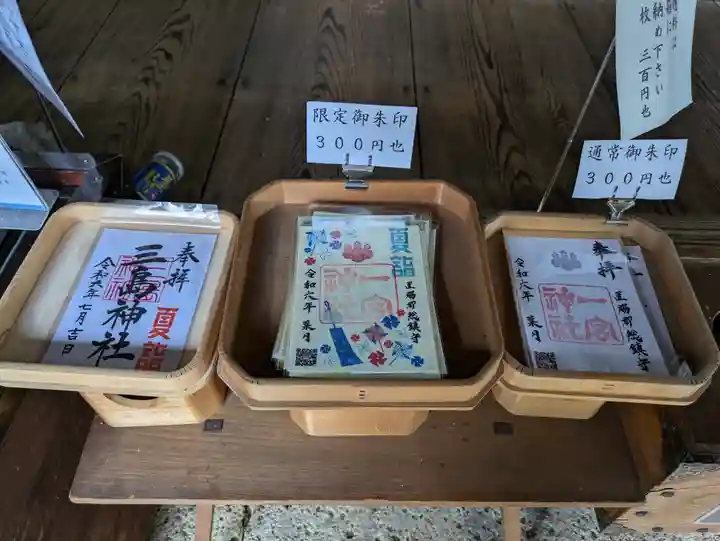 限定御朱印
３００円也
通常御朱印
３００円也
納め下さい
枚 三百円也
奉拝
三島神社
夏詣
令和六年 七月吉日
夏詣
里総鎮守
一宮神社
令和六年 葉月
奉拝
総鎮守
一宮神社
令和六年 葉月